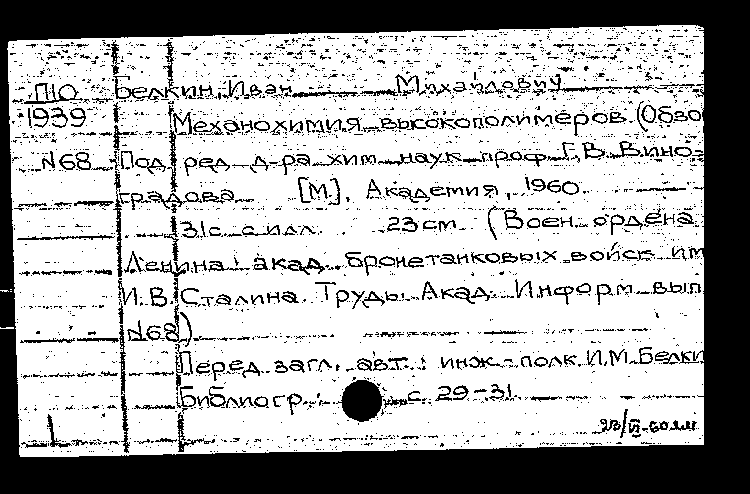 П10 Белкин, Иван Михайлович
1939 Механохимия высокополимеров (Обзо
N68 Под ред. д-ра хим. наук проф. Г.В. Вино-
градова [М.], Академия, 1960.
31с. с илл. 23 см. (Воен. ордена
Ленина акад. бронетанковых войск им
И.В. Сталина. Труды Акад. Информ. вып
N68)
Перед загл. авт.: инж.-полк. И.М. Белки
Библиогр.: с. 29-31.
1
23/VI-60